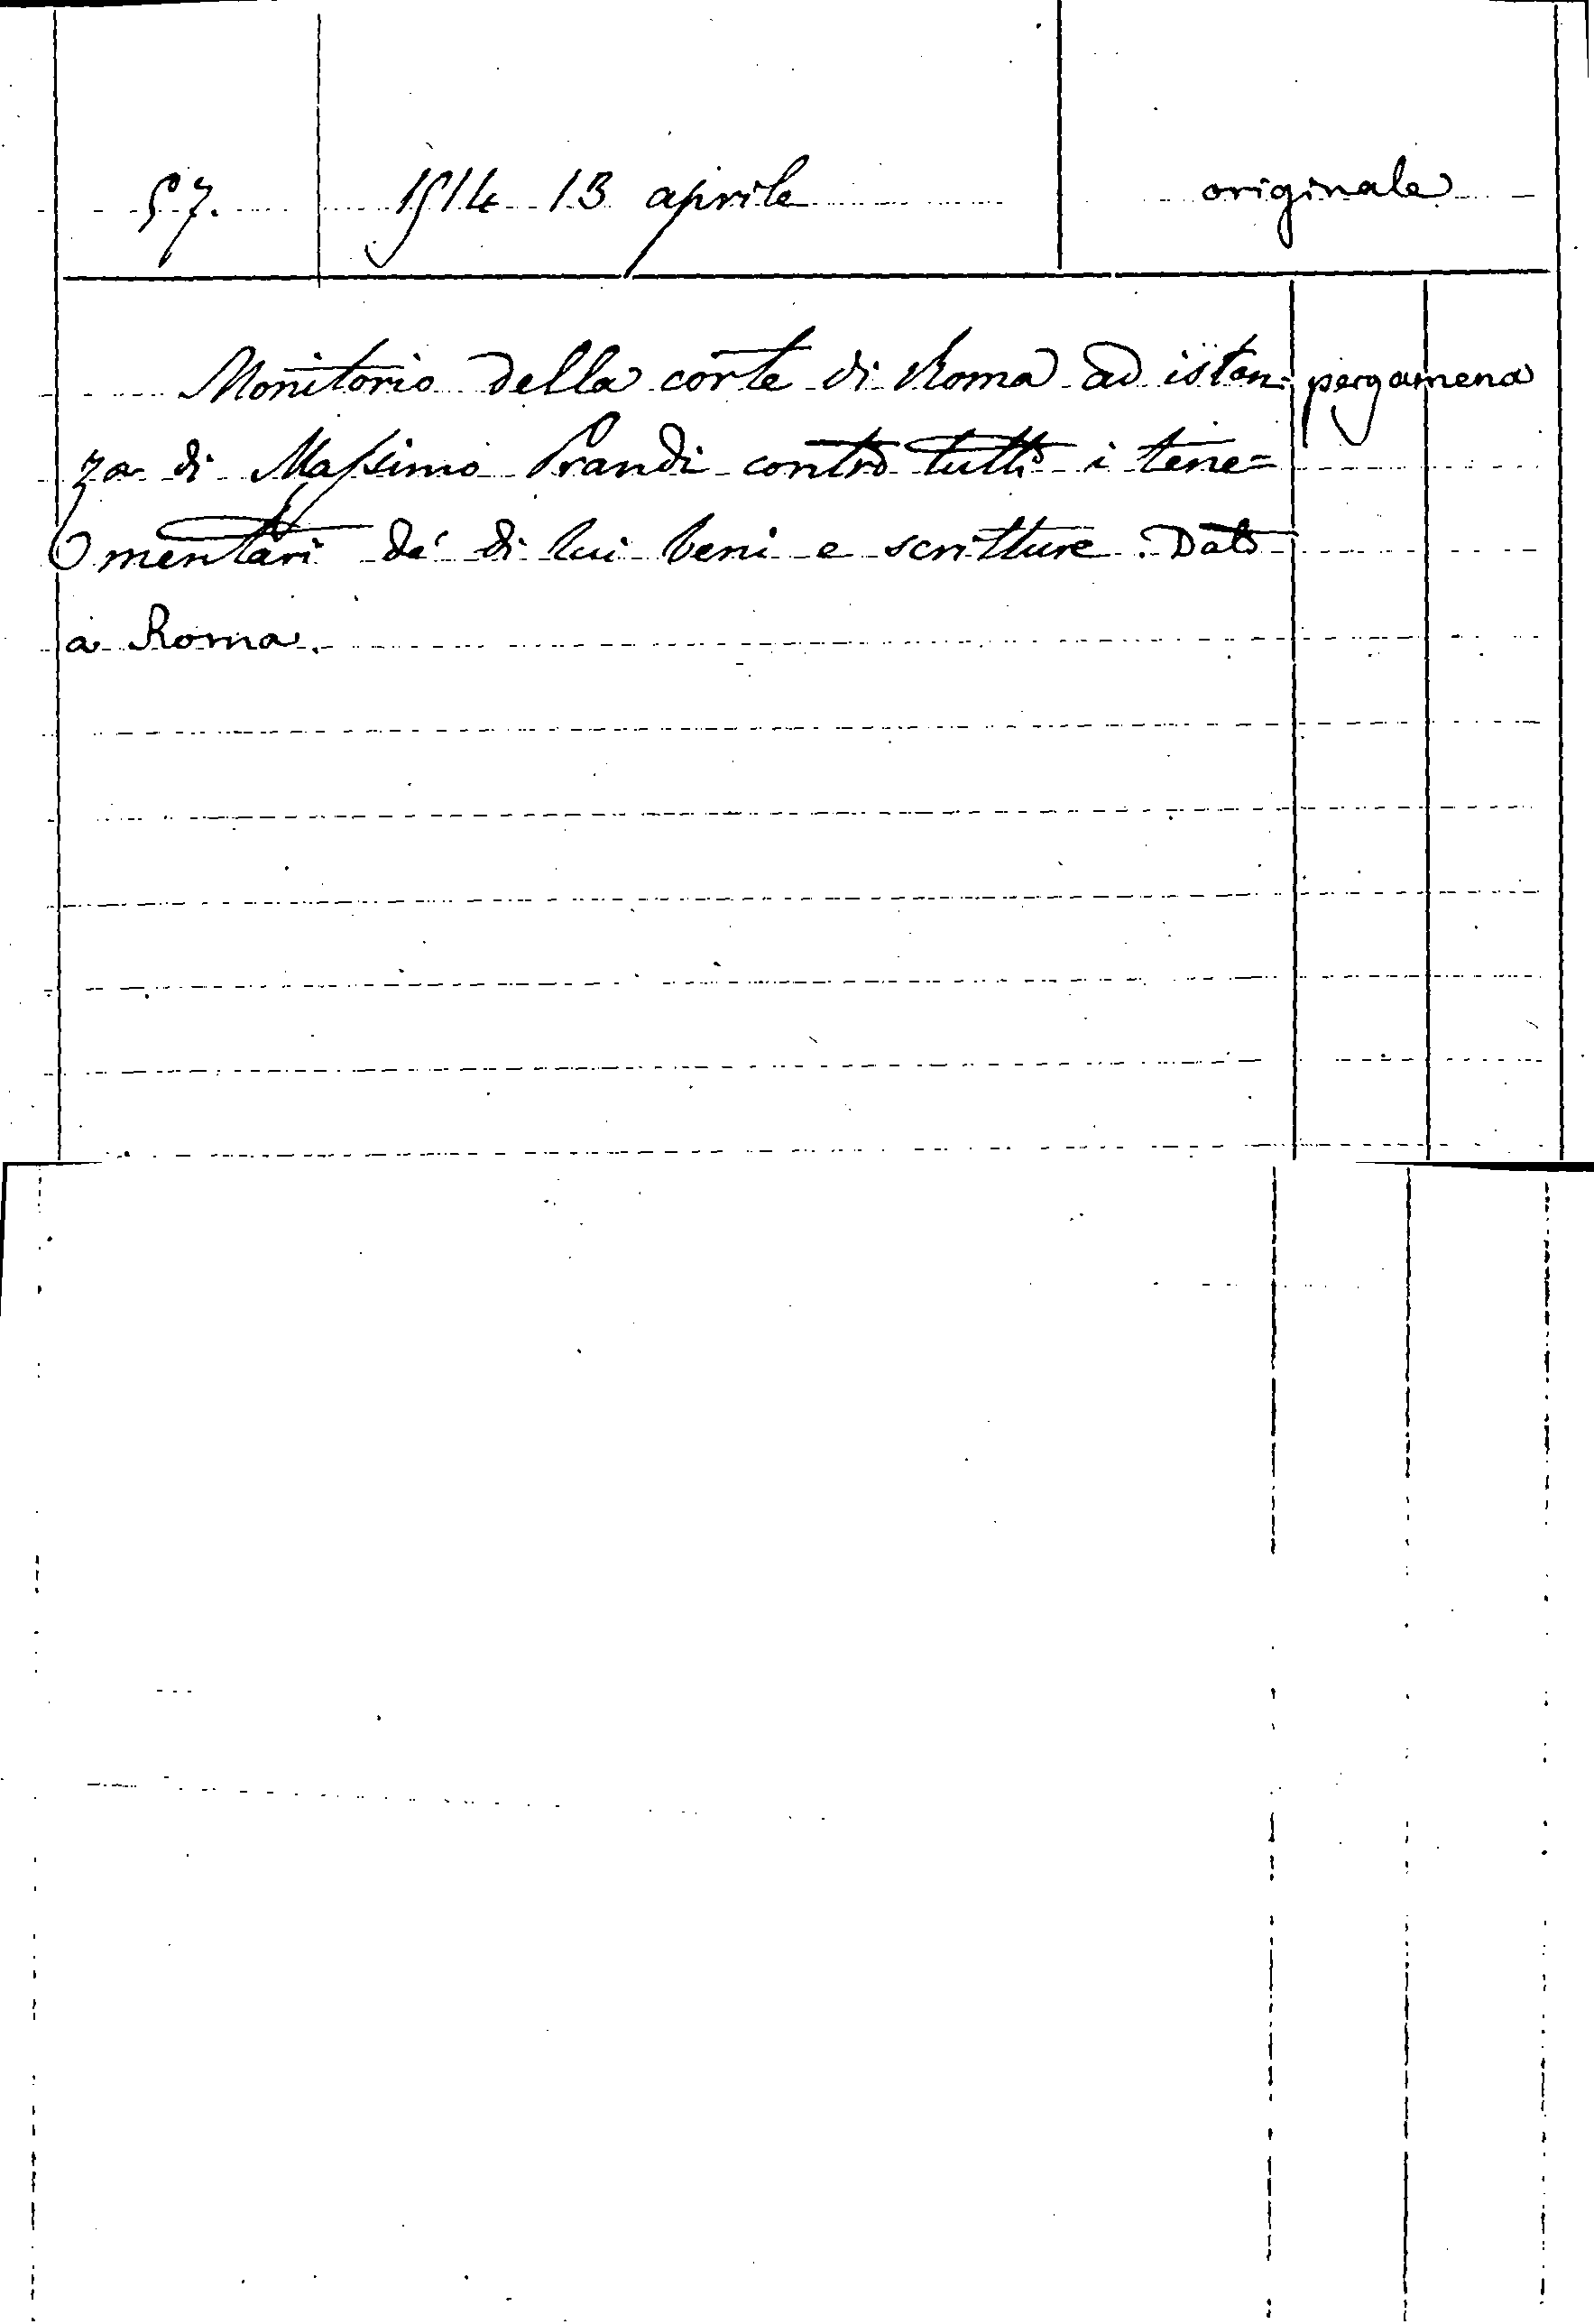 57. 1514 13 aprile originale
Monitorio della corte di Roma ad istan= pergamena
za di Massimo Prandi contro tutti i tene=
mentari de' di lui beni e scritture. Dato
a Roma.